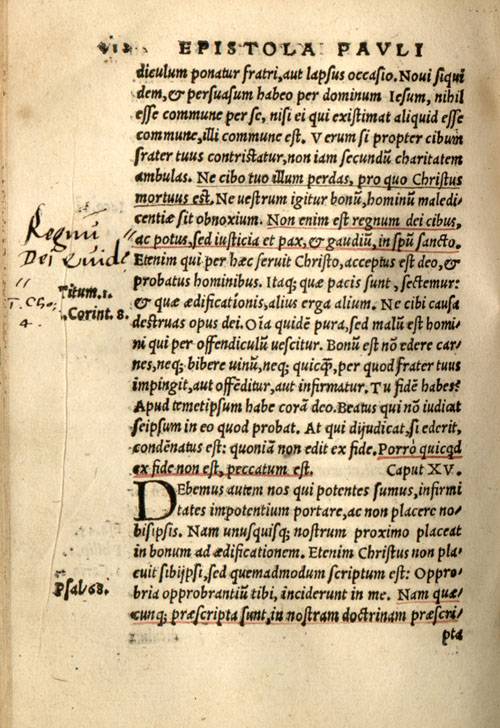 EPISTOLA PAVLI
diculum ponatur fratri, aut lapsus occasio. Noui siqui
dem, & persuasum habeo per dominum Iesum, nihil
esse commune per se, nisi ei qui existimat aliquid esse
commune, illi commune est. Verum si propter cibum
frater tuus contristatur, non iam secundũ charitatem
ambulas. Ne cibo tuo illum perdas, pro quo Christus
mortuus est. Ne uestrum igitur bonũ, hominũ maledi-
centiæ sit obnoxium. Non enim est regnum dei cibus,
ac potus, sed iusticia et pax, & gaudiũ, in spũ sancto.
Regnũ
Dei quid
Etenim qui per hæc seruit Christo, acceptus est deo, &
probatus hominibus. Itaq; quæ pacis sunt, sectemur:
Titum.1.
& quæ ædificationis, alius erga alium. Ne cibi causa
1. Corint. 8.
4.
destruas opus dei. Oĩa quidẽ pura, sed malũ est homi
ni qui per offendiculũ uescitur. Bonũ est nõ edere car-
nes, neq; bibere uinũ, neq; quicq̃, per quod frater tuus
impingit, aut offẽditur, aut infirmatur. Tu fidẽ habes?
Apud temetipsum habe corã deo. Beatus qui nõ iudicat
seipsum in eo quod probat. At qui dijudicat, si ederit,
condẽnatus est: quoniã non edit ex fide. Porrò quicqd
ex fide non est, peccatum est. Caput XV.
DEbemus autem nos qui potentes sumus, infirmi
tates impotentium portare, ac non placere no-
bisipsis. Nam unusquisq; nostrum proximo placeat
in bonum ad ædificationem. Etenim Christus non pla-
cuit sibijpsi, sed quemadmodum scriptum est: Oppro-
Psal 68.
bria opprobrantiũ tibi, inciderunt in me. Nam quæ-
cunq; præscripta sunt, in nostram doctrinam præscri-
pta